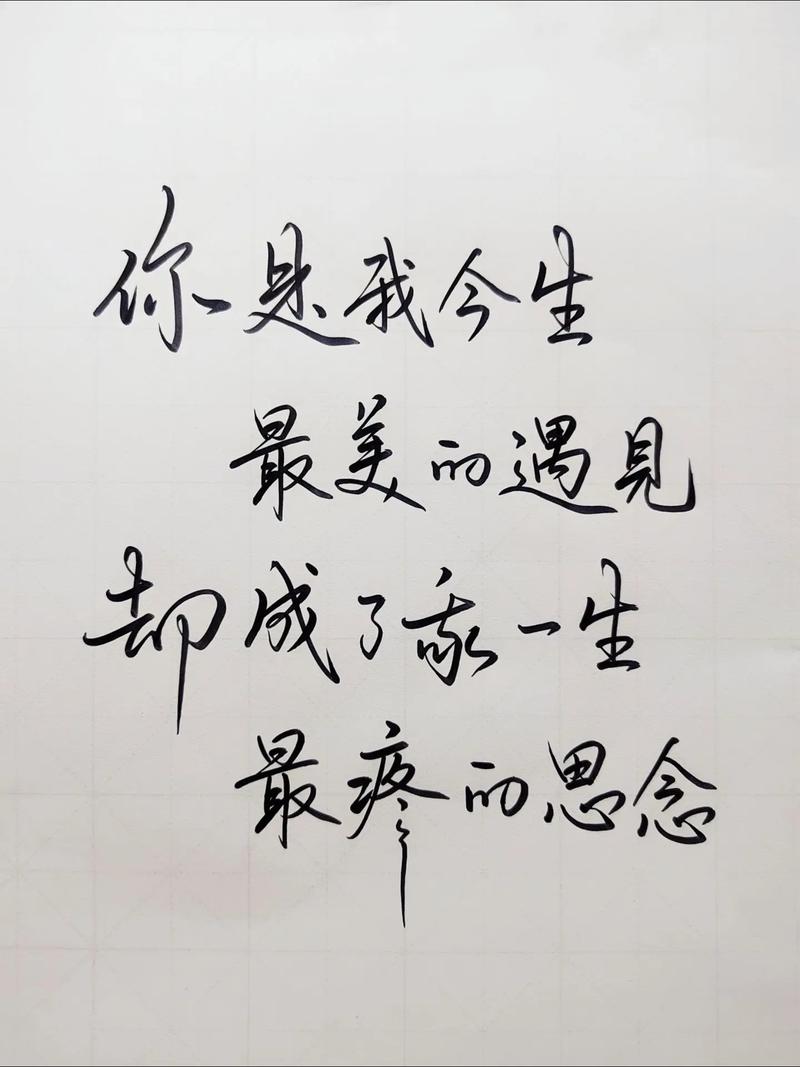 你是我今生
最美的遇見
却成了我一生
最疼的思念